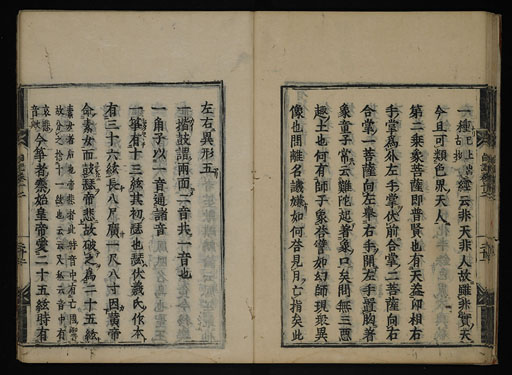 一種已上出古抄經云非天非人故雖非實天
今且可類色界天人
第二乘象菩薩即普賢也有天蓋仰相右
手掌為外左手掌伏前合掌二菩薩向右
合掌一菩薩向左舉右手開左手置胸著
象童子常云難陀超著象口矣問無三惡
趣土也何有師子象答譬如幻師現眾異
像也問離名譏嫌如何答見月亡指矣此
左右異形五
一揩鼓謂兩面二音共一音也
一角子以一音通諸音
一箏有十三絃其初瑟也瑟伏羲氏作本
有三十六絃長八尺廣一尺八寸因黃帝
命素女而鼓瑟帝悲故破之為二十五絃
今箏者秦始皇帝愛二十五絃時有